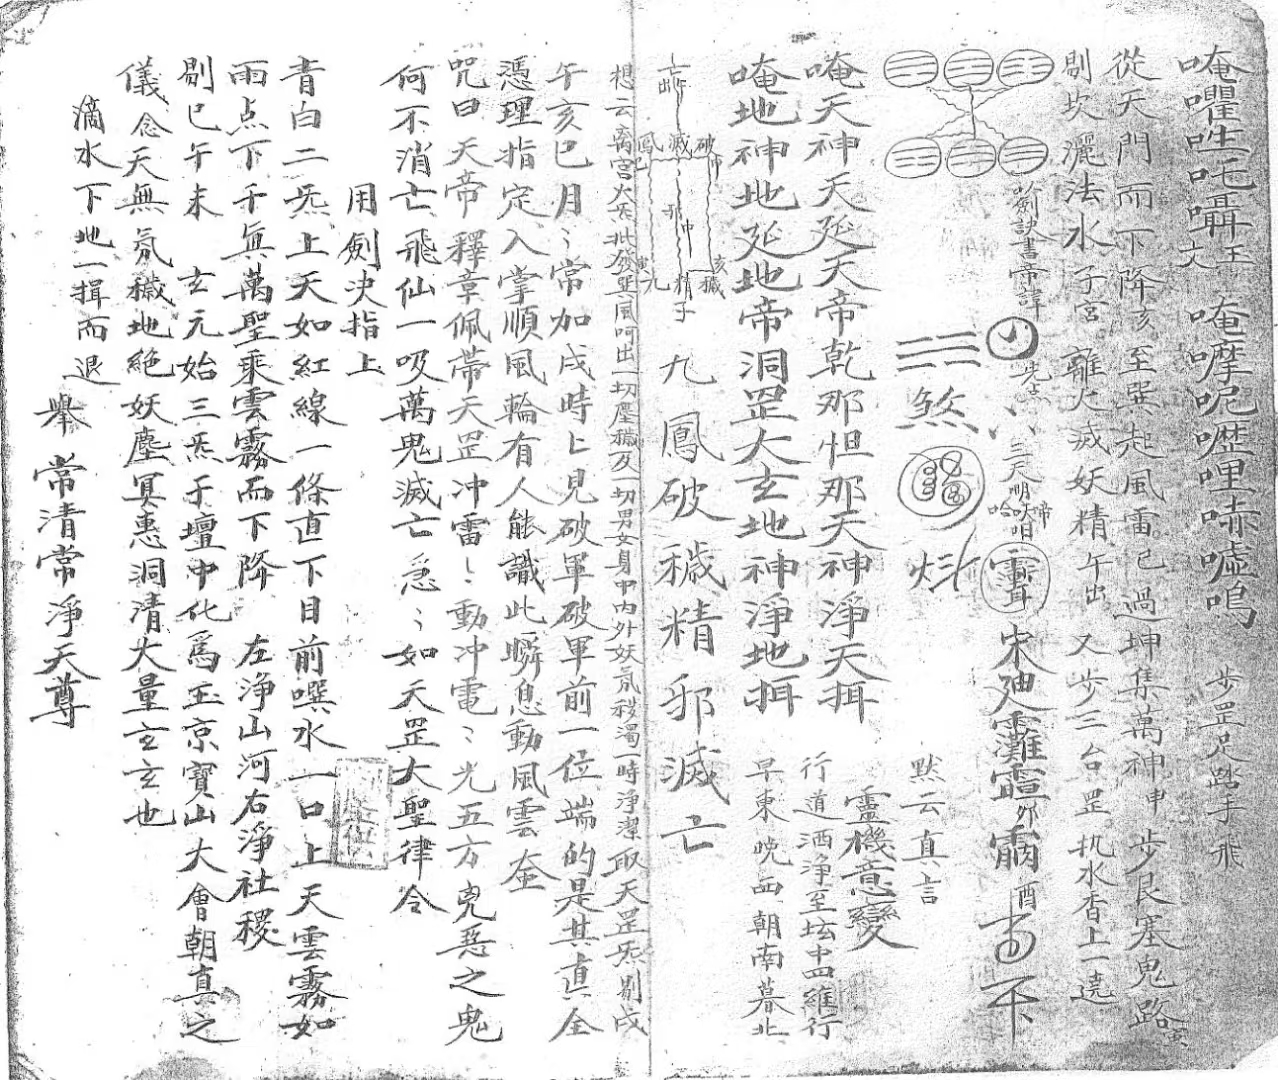 唵 吒囁 唵摩呢 哩 嘘鳴 步罡足踏手飛
從天門而下降亥至巽起風雷巳過坤集萬神申步艮塞鬼路寅
剔坎灑法水子宮離火滅妖精午出又步三台罡执水香上一遶
劍訣書帝諱 先点 三天 明 哈 咄 啼
宋 灘 酉 下
煞 默云真言
靈機意變
唵天神天延天帝乾那怛那天神淨天揖 行道洒淨至坛中四維行
唵地神地延地帝洞罡大玄地神淨地揖 早東晚西朝南暮北
破 滅 鳳 巳 午 邪 冲 亥 穢 精 子 寅 九
九鳳破穢精邪滅亡
想云离宮火炁批發巽風呵出一切塵穢及一切男女身中内外妖氛秽濁一時淨潔取天罡炁剔戌
午亥巳月〻常加戌時〻見破軍破軍前一位端的是其真全
憑理指定入掌順風輪有人能識此瞬息動風雲
咒曰天帝釋章佩帶天罡冲雷〻動冲電〻光五方兇惡之鬼
何不消亡飛仙一吸萬鬼滅亡急〻如天罡大聖律令
用劍决指上
青白二炁上天如紅線一條直下目前噀水一口上天雲霧如
雨点下千真萬聖乘雲霧而下降 左淨山河右淨社稷
剔巳午未 玄元始三炁于壇中化爲玉京寶山大會朝真之
儀念天無氛穢地絕妖塵冥惠洞清大量玄玄也
滴水下地一揖而退
舉 常清常淨天尊